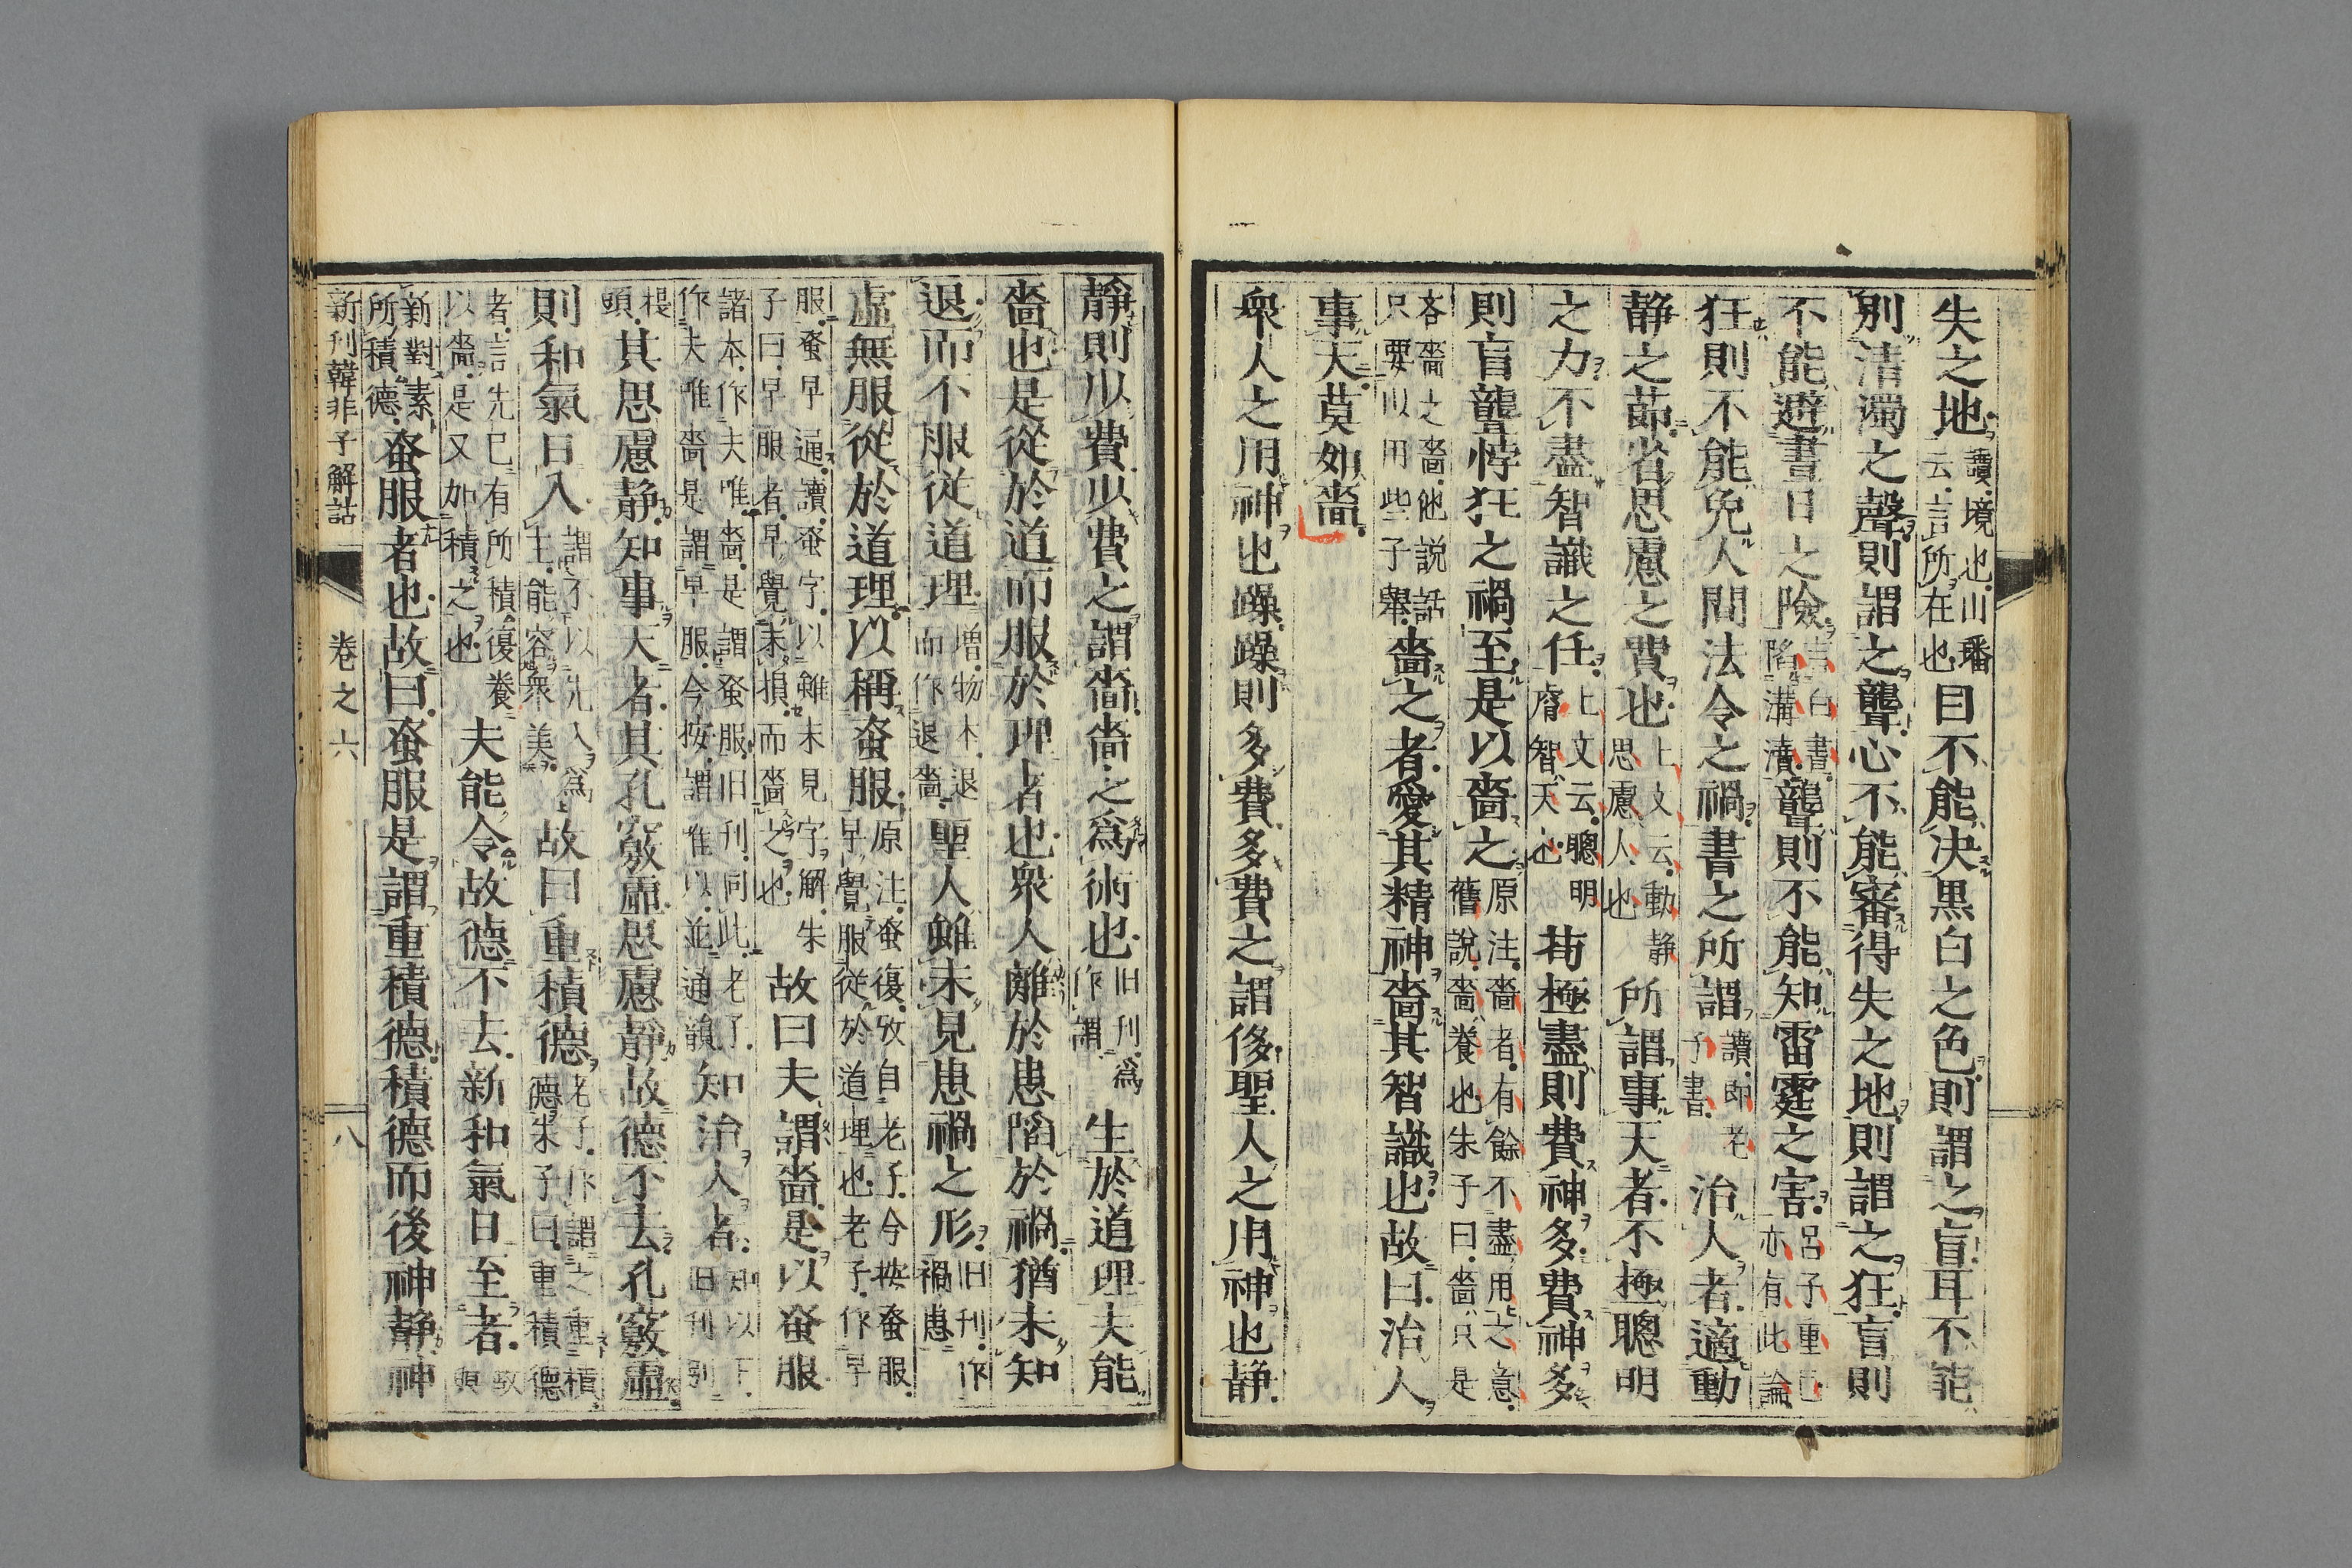 失之地讀境也山璠云言所在也目不能决黒白之色則謂之盲耳不能
別清濁之聲則謂之聾心不能審得失之地則謂之狂盲則
不能避晝日之險言白書陷溝瀆聾則不能知雷霆之害呂子重己亦有此論
狂則不能免人間法令之禍書之所謂讀即老子書治人者適動
静之莭省思慮之費也上文云動静思慮人也所謂事天者不極聰明
之力不盡智識之任上文云聰明睿智天也苟極盡則費神多費神多
則盲聾悖狂之禍至是以嗇之原注嗇者有餘不盡用之意舊說嗇養也朱子曰嗇只是
吝嗇之嗇他説話只要以用些子舉嗇之者愛其精神嗇其智識也故曰治人
事天莫如嗇
衆人之用神也躁躁則多費多費之謂侈聖人之用神也静
静則少費少費之謂嗇嗇之爲術也旧刊爲作謂生於道理夫能
嗇也是從於道而服於理者也衆人離於患陷於禍猶未知
退而不服従道理増物本退而作退嗇聖人雖未見患禍之形旧刊作禍患
虚無服從於道理以稱蚤服原注蚤復攷自老子今按蚤服早覺服従於道理也老子作早
服蚤早通讀蚤字以雖未見字解朱子曰早服者早覺未損而嗇之也故曰夫謂嗇是以蚤服
諸本作夫唯嗇是謂蚤服旧刊同此老子作夫唯嗇是謂早服今按謂唯以並通韻知治人者旧刊別
提頭其思慮静知事天者其孔竅虚思慮靜故德不去孔竅虚
則和氣日入謂不以先入爲主能容衆美故曰重積德老子作謂之重積德朱子曰重積德
者言先已有所積復養以嗇是又加積之也夫能令故德不去新和氣日至者
新對素所積德蚤服者也故曰蚤服是謂重積德積德而後神静神
新刊韓非子解詁 卷之六 八